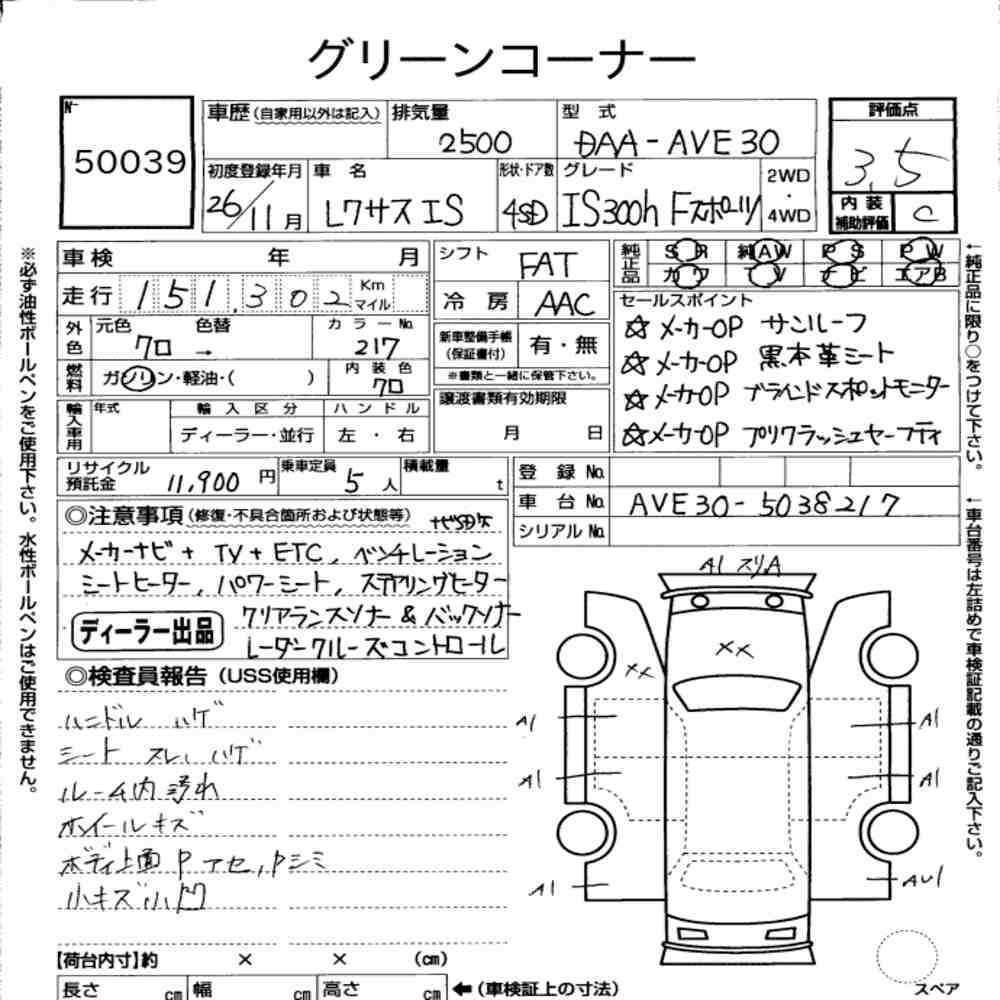 グリーンコーナー
№ 50039
車歴 (自家用以外は記入) 排気量 2500 型式 DAA-AVE30 評価点 3.5
初度登録年月 26/11月 車名 レクサスIS 形状・ドア数 4SD グレード IS300h Fスポーツ 2WD・4WD 内装補助評価 C
車検 年 月 シフト FAT 純正品 SR 純AW PS PW
走行 151,302 Km マイル 冷房 AAC カワ TV ナビ エアB
外色 元色 クロ 色替 → カラーNo. 217 新車整備手帳(保証書付) 有・無
セールスポイント
☆メーカーOP サンルーフ
☆メーカーOP 黒本革シート
☆メーカーOP ブラインドスポットモニター
☆メーカーOP プリクラッシュセーフティ
燃料 ガソリン・軽油・( ) 内装色 クロ ※書類と一緒に保管下さい。
輸入車用 年式 輸入区分 ハンドル 譲渡書類有効期限
ディーラー・並行 左・右 月 日
リサイクル預託金 11,900円 乗車定員 5人 積載量 t 登録No.
車台No. AVE30-5038217
シリアルNo.
◎注意事項 (修復・不具合箇所および状態等) ナビSD欠
メーカーナビ+TV+ETC, ベンチレーション
シートヒーター, パワーシート, ステアリングヒーター
クリアランスソナー&バックソナー
ディーラー出品 レーダークルーズコントロール
◎検査員報告 (USS使用欄)
ハンドル ハゲ
シート スレ, ハゲ
ルーム内 汚れ
ホイールキズ
ボディ上面 P アセ, Pシミ
小キズ 小凹
A1 スリA
XX
XX
A1 A1
A1 A1
A1 AU1
スペア
【荷台内寸】約 × × (cm)
長さ cm 幅 cm 高さ cm ←(車検証上の寸法)
※必ず油性ボールペンをご使用下さい。水性ボールペンはご使用できません。
←純正品に限り○をつけて下さい。
←車台番号は左詰めで車検証記載の通りご記入下さい。